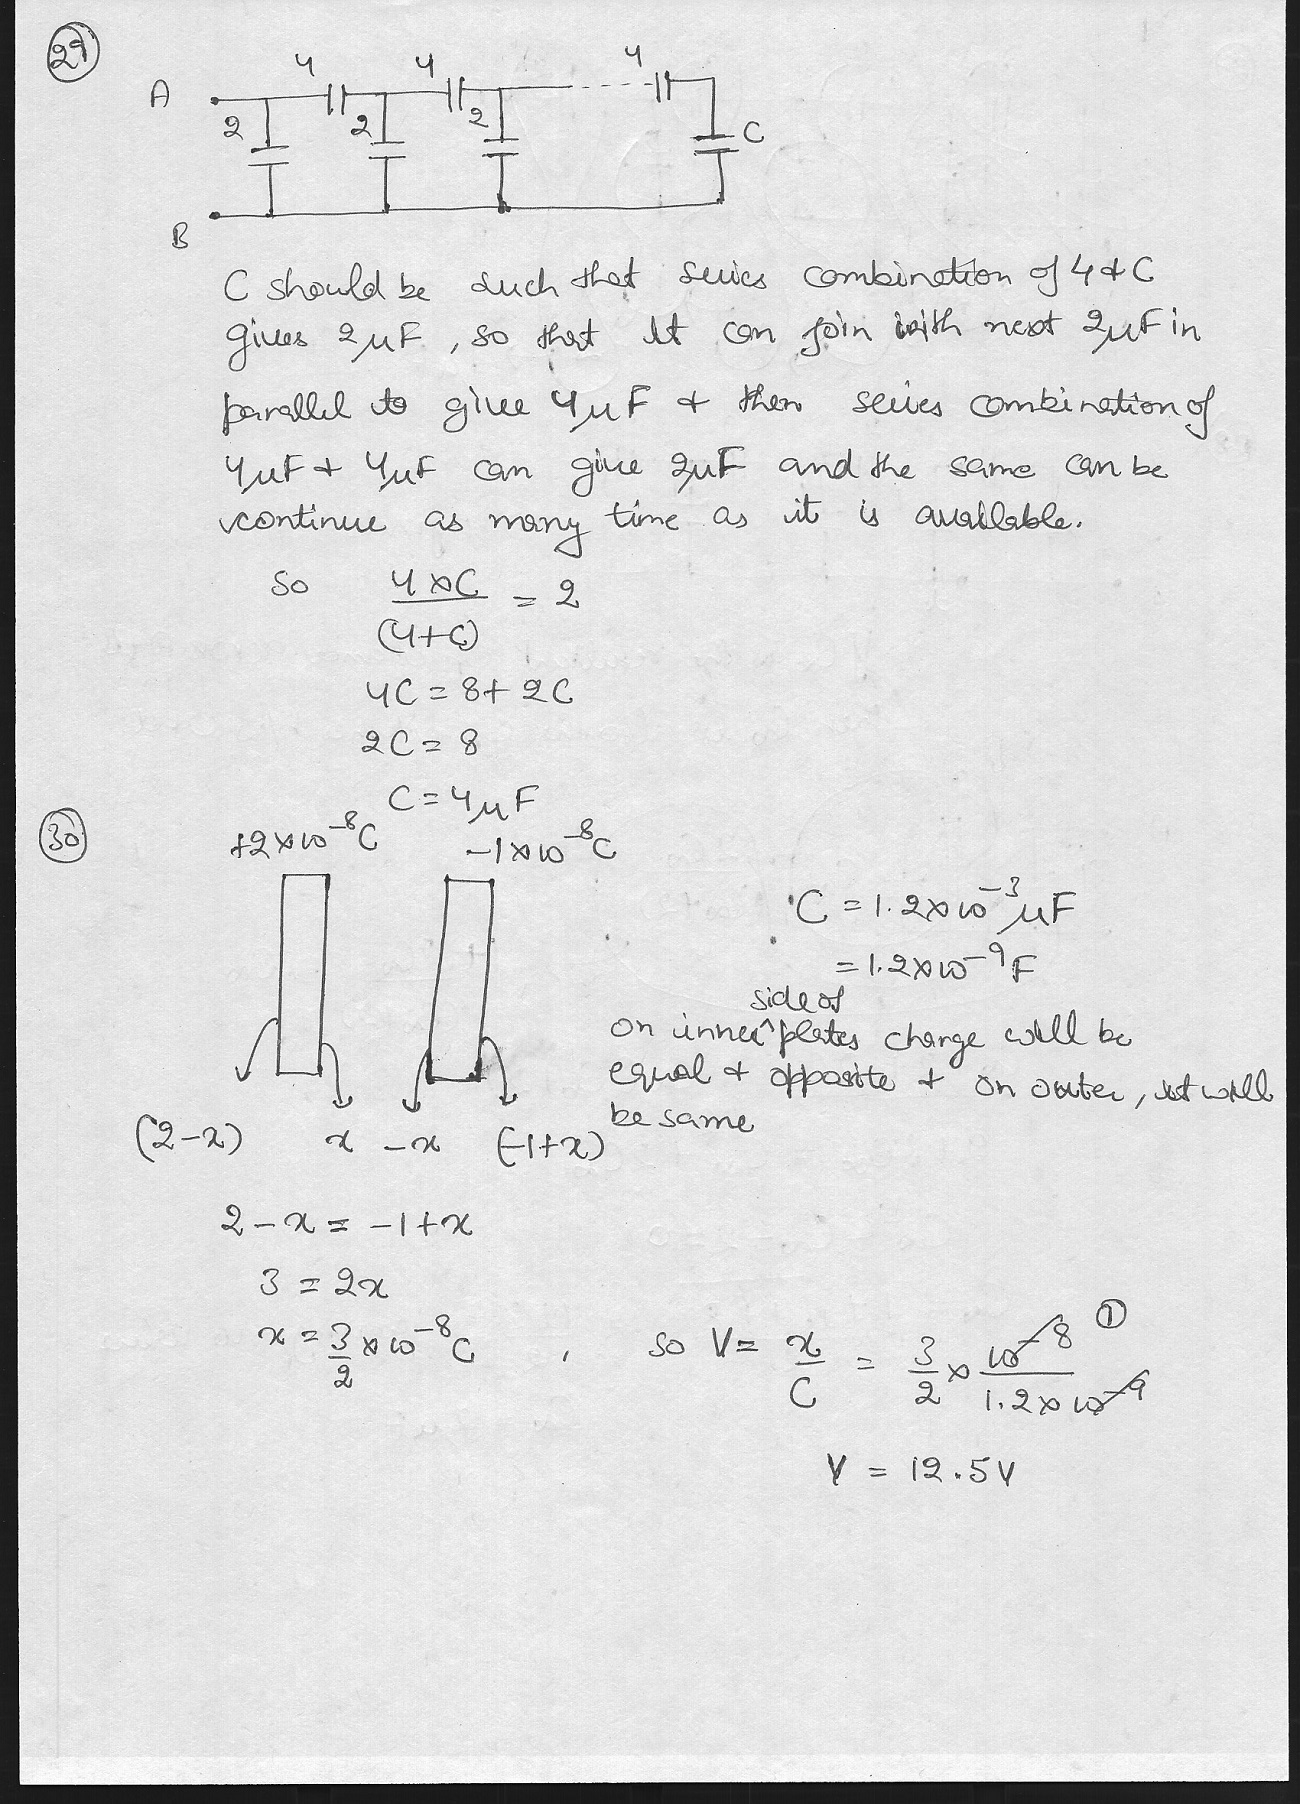 29
4 4 4
A
2 2 2 C
B
C should be such that series combination of 4 & C
gives 2μF, so that it can join with next 2μF in
parallel to give 4μF & then series combination of
4μF & 4μF can give 2μF and the same can be
continue as many time as it is available.
So 4×C/(4+C) = 2
4C = 8+2C
2C = 8
C = 4μF
30
+2×10⁻⁸C -1×10⁻⁸C
C = 1.2×10⁻³μF
= 1.2×10⁻⁹F
side of
on inner^plates charge will be
equal & opposite & on outer, it will
be same
(2-x) x -x (-1+x)
2-x = -1+x
3 = 2x
x = 3/2 ×10⁻⁸C , so V = x/C = 3/2 × 10⁻⁸/1.2×10⁻⁹ ①
V = 12.5V